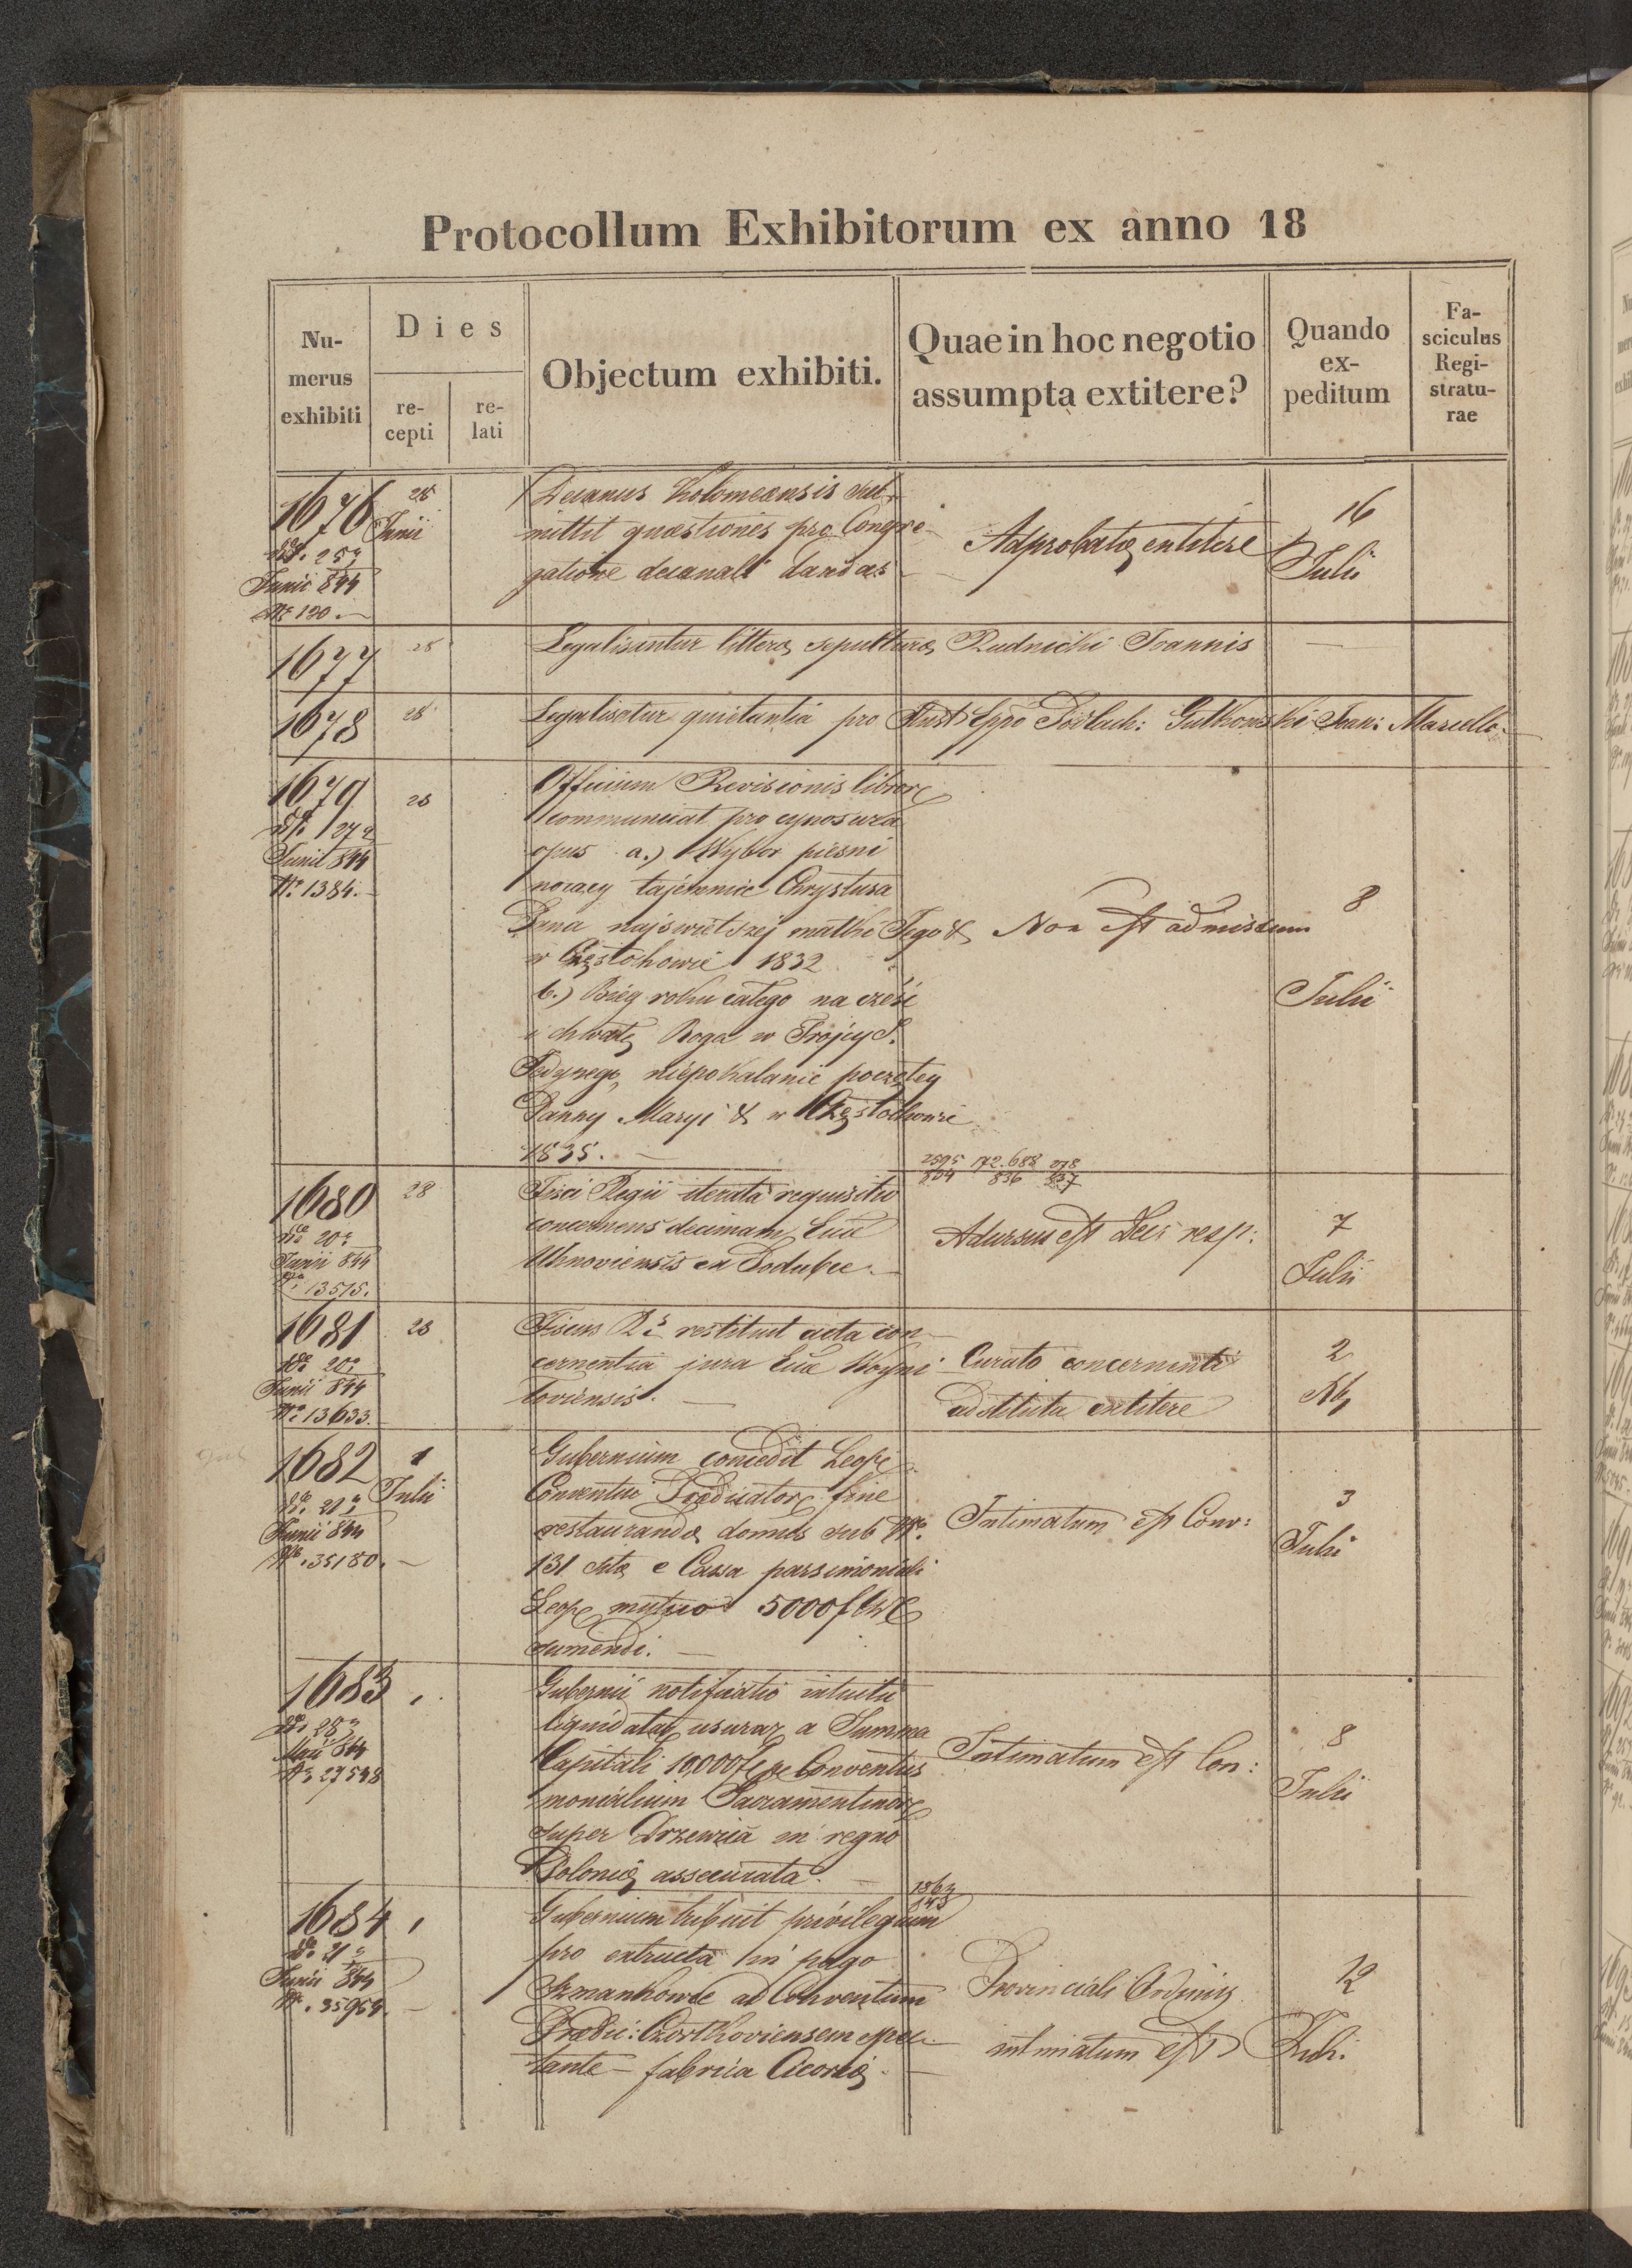 Protocollum Exhibitorum ex anno 18
Nu-
merus
exhibiti
Dies
re-
cepti
re-
lati
Objectum exhibiti.
Quae in hoc negotio
assumpta extitere?
Quando
ex-
peditum
Fa-
sciculus
Regi-
stratu-
rae
1676
25
Junii 844
Nr 120.
28
Junii
Decanus Kolomeansis sub-
mittit quæstiones pro Congre-
gatione decanali dandas
Adprobatæ extitere
16
Julii
1677
28
Legalisantur litteræ sepulturæ Rudnicki Joannis
1678
28
Legalisatur quietantia pro Illust Eppo Podlach: Gutkowski Joan: Marcello
1679
27
Junii 844
Nr. 1384.
28
Officium Revisionis libror
communicat pro cynosura
opus a.) Wybor piesni
nowacy tajemnice Chrystusa
Pana najswietszej matki Jego &
w Częstochowie 1832
b.) Bieg roku całego na cześć
i chwałę Boga w Trójcy S.
Jedynego, niepokalanie poczętey
Panny Maryi & w Częstochowie
1835.
Non est admissum
8
Julii
1680
20
Junii 844
13515.
28
Fisci Regii iterata requisitio
concernens decimam Eccl
Uhnoviensis ex Dodubce.
2595 172.688 278
804 836 837
Adversus est resp:
7
Julii
1681
20
Junii 844
Nr. 13633.
28
Fiscus R restituit acta con-
cernentia jura Eccl Woyni
loviensis.
Curato concernenti
adstituta extitere
2
1682
21
Junii 844
Nr. 35180.
1
Julii
Gubernium concedit Leop
Conventui Prædicator fine
restaurandæ domus sub Nr.
131 sitæ e Cassa parsimoniali
Leop mutuo 5000 f
sumendi.
Intimatum est Conv:
3
Julii
1683
28
Maii 844
Nr 27548
Gubernii notificatio intuitu
liquidatar usurar a Summa
Capitali 10,000 Conventus
monialium Sacramentinor
super Drzewica in regno
Poloniæ assecurata.
Intimatum est Con:
8
Julii
1684
21
Junii 844
Nr. 35969.
Gubernium tribuit privilegium
pro extructa in pago
ad Conventum
Prædic: Czortkoviensem spec-
tante fabrica Cicoreæ
Provinciali Ordinis
intimatum est
12
Juli.